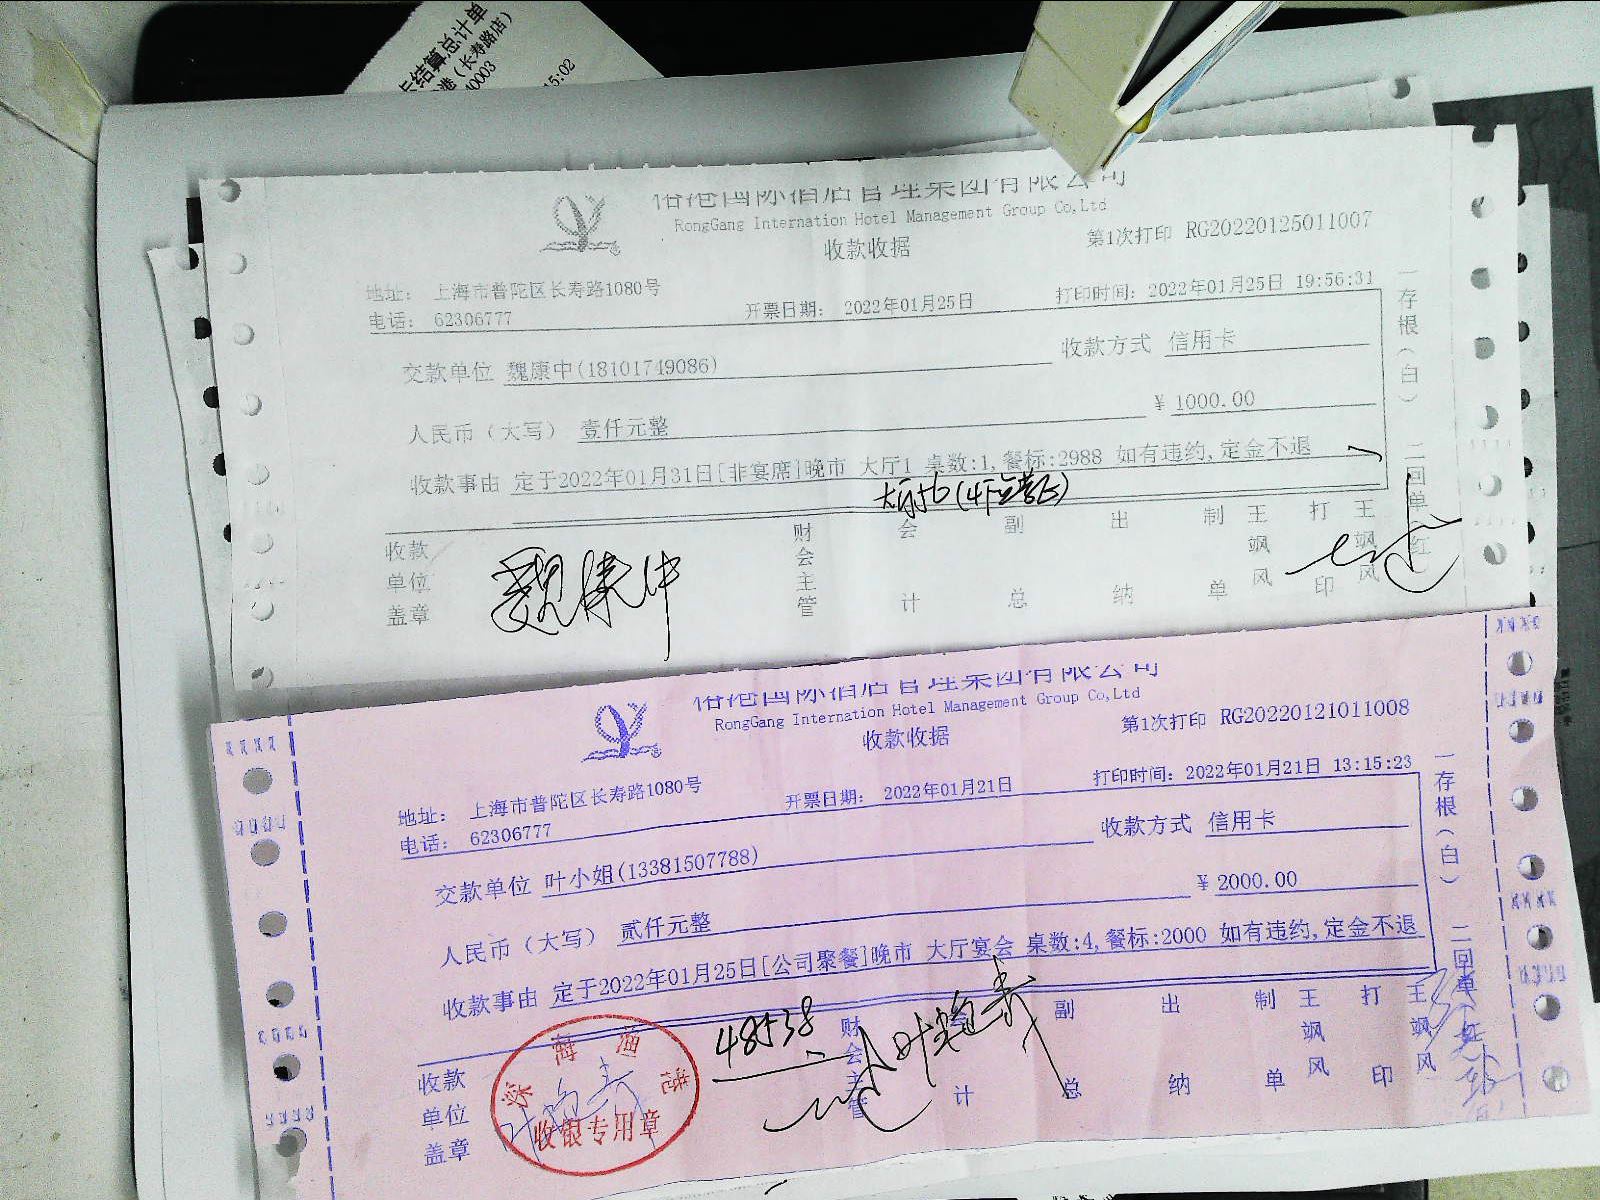 结算总计单
港（长寿路店）
40003
15:02
RongGang Internation Hotel Management Group Co,Ltd
收款收据
第1次打印 RG20220125011007
地址： 上海市普陀区长寿路1080号
电话： 62306777
开票日期： 2022年01月25日
打印时间：2022年01月25日 19:56:31
交款单位 魏康中(18101749086)
收款方式 信用卡
人民币（大写） 壹仟元整
￥ 1000.00
收款事由 定于2022年01月31日[非宴席]晚市 大厅1 桌数:1,餐标:2988 如有违约,定金不退
收款单位盖章
魏康中
财会主管
会计
副总
出纳
制单
王飒风
打印
王飒风
一存根（白）
二回单（红）
国际酒店管理集团有限公司
RongGang Internation Hotel Management Group Co,Ltd
收款收据
第1次打印 RG20220121011008
地址： 上海市普陀区长寿路1080号
电话： 62306777
开票日期： 2022年01月21日
打印时间：2022年01月21日 13:15:23
交款单位 叶小姐(13381507788)
收款方式 信用卡
人民币（大写） 贰仟元整
￥ 2000.00
收款事由 定于2022年01月25日[公司聚餐]晚市 大厅宴会 桌数:4,餐标:2000 如有违约,定金不退
收款单位盖章
深海渔港
收银专用章
48538
财会主管
会计
副总
出纳
制单
王飒风
打印
王飒风
一存根（白）
二回单（红）